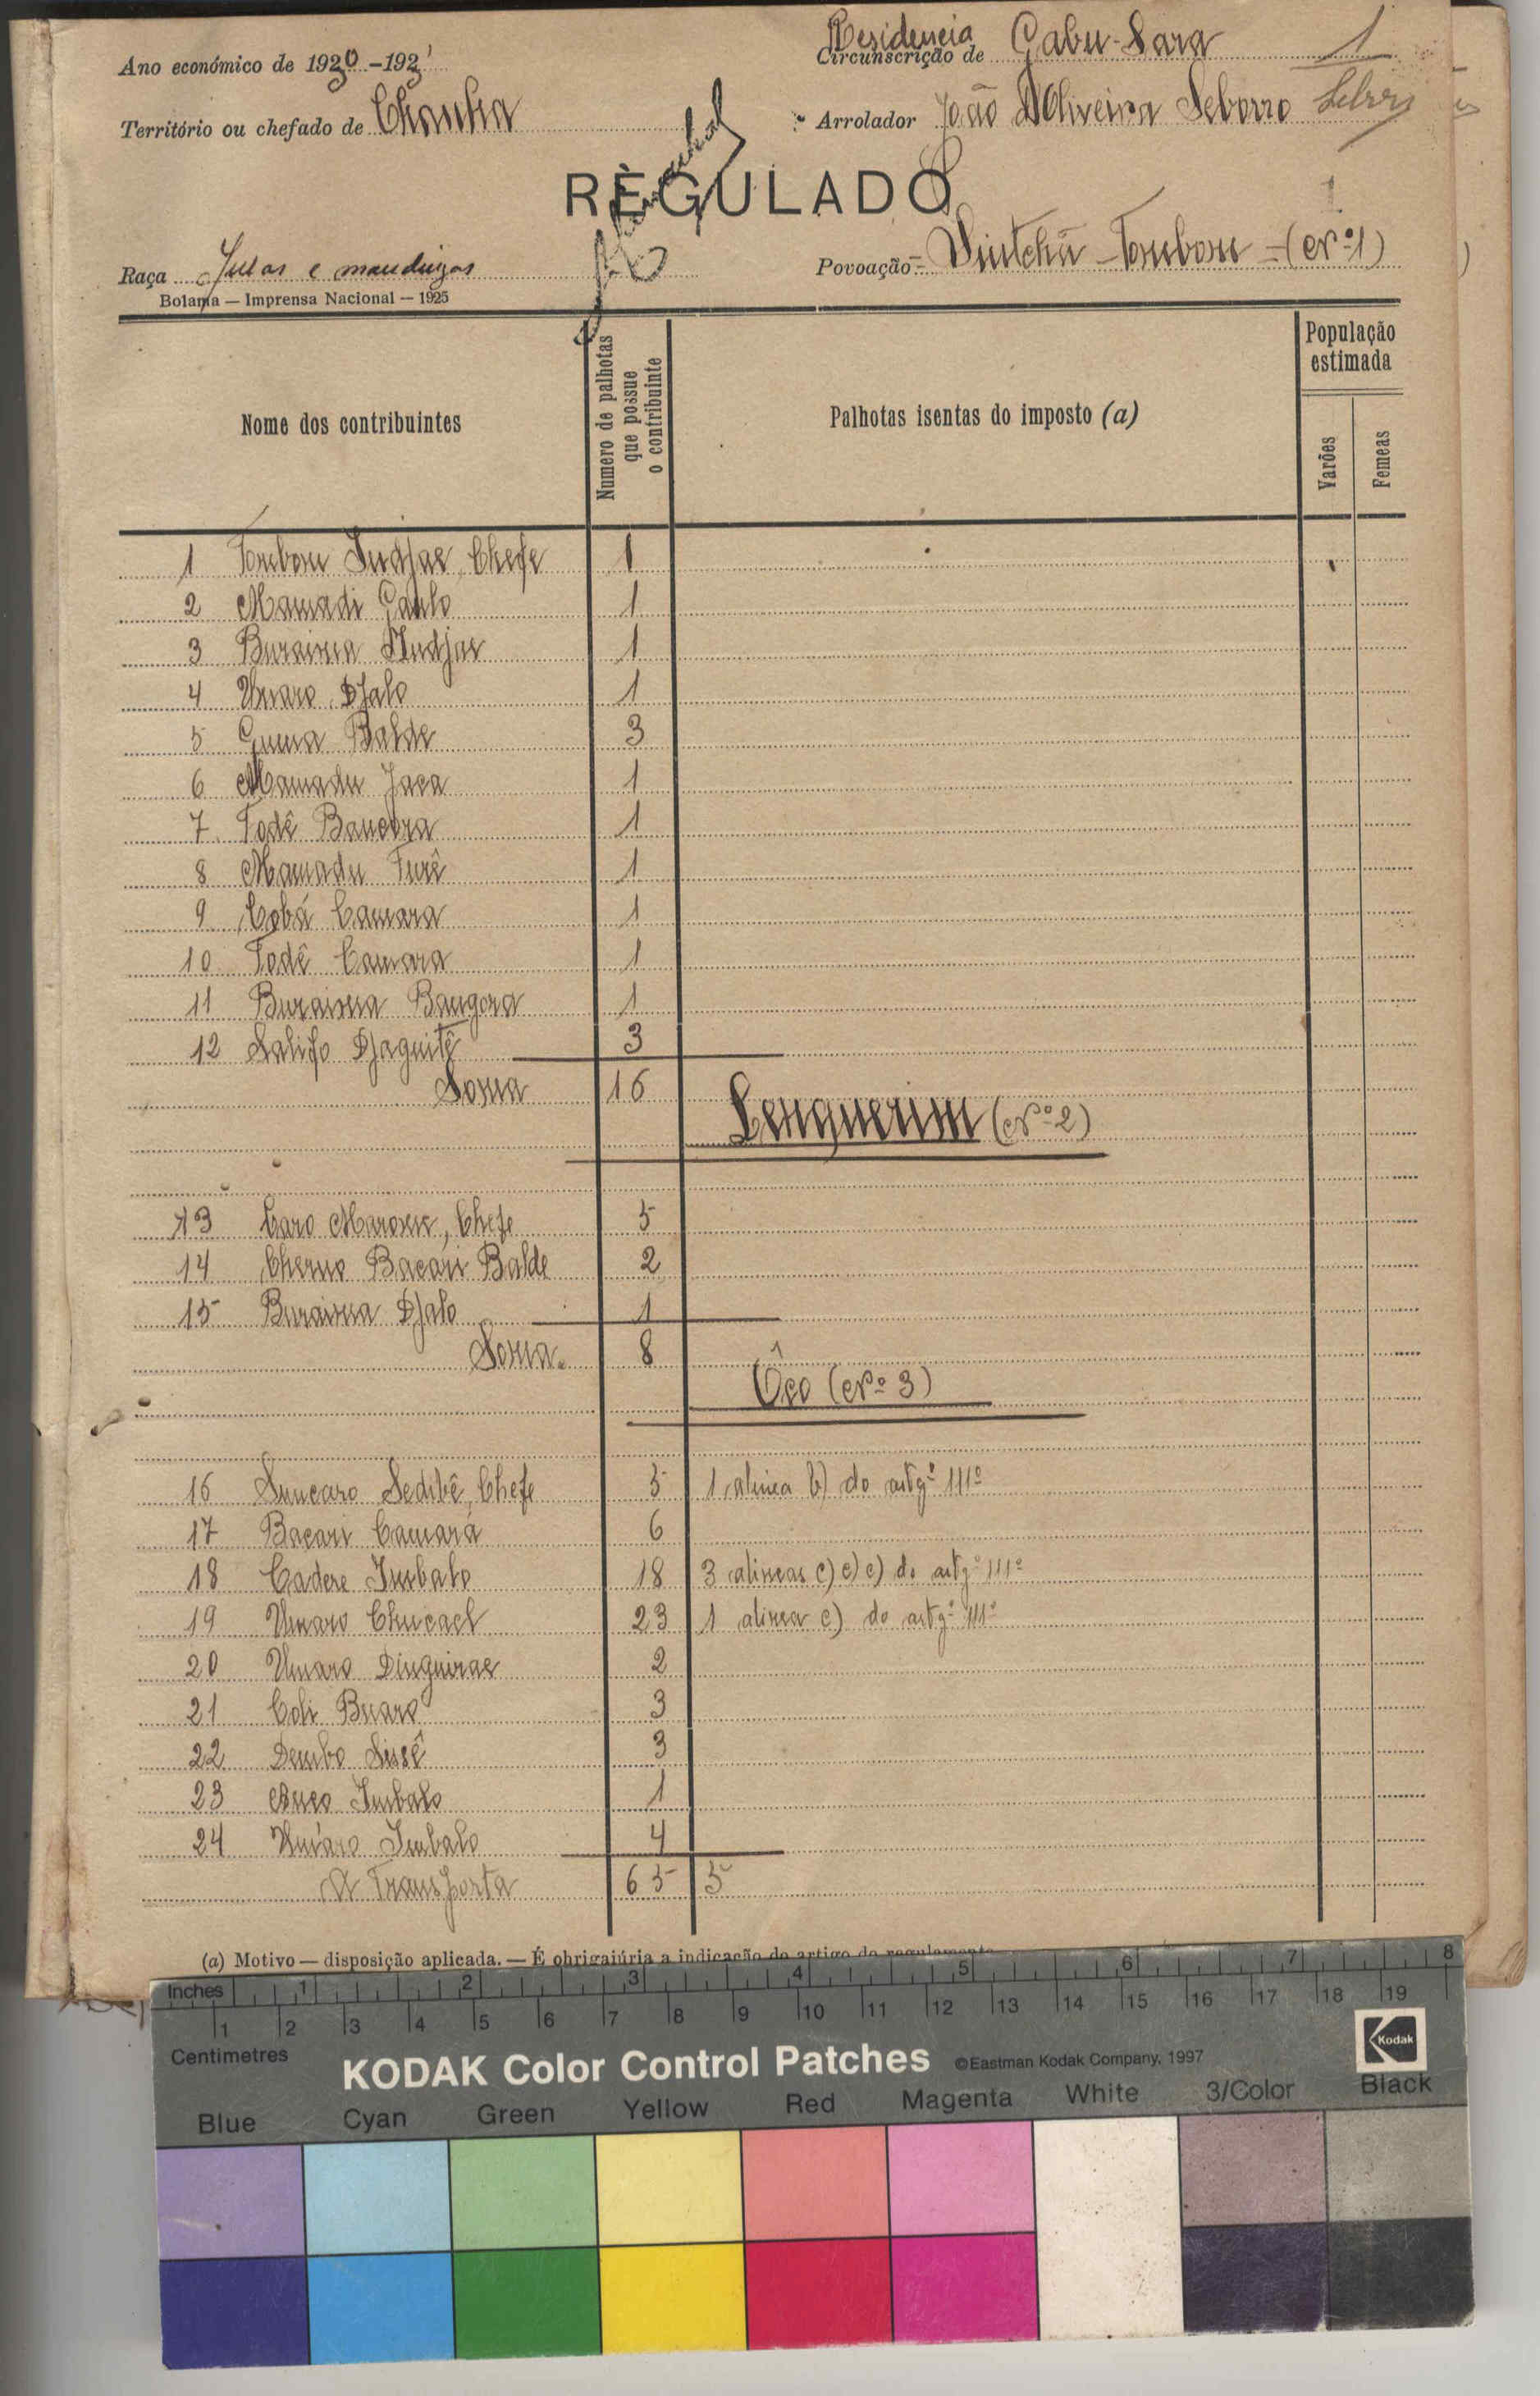 Residencia
Circunscrição de Gabu-Sara 1
Ano económico de 1930-1931
Território ou chefado de Chanha
Arrolador João D'Oliveira Seborro
REGULADO
Raça Fulas e mandingas
Povoação - Sintchã - Tombom - (Nº 1)
Bolama — Imprensa Nacional — 1925
Nome dos contribuintes
Numero de palhotas que possue o contribuinte
Palhotas isentas do imposto (a)
População estimada
Varões
Femeas
1 Tombom Indjae, Chefe 1
2 Mamadi Gaulo 1
3 Buraima Indjae 1
4 Umaro Djalo 1
5 Guma Balde 3
6 Mamadu Jaca 1
7 Fodê Bancora 1
8 Mamadu Turê 1
9 Cobá Camara 1
10 Fodê Camara 1
11 Buraima Bangora 1
12 Salifo Djaguitê 3
Soma 16
Lenquerim (Nº 2)
13 Caro Marone, Chefe 5
14 Cherno Bacari Balde 2
15 Buraima Djalo 1
Soma 8
Ôco (Nº 3)
16 Suncaro Sedibê, Chefe 5 1 alinea b) do artgº 111º
17 Bacari Camará 6
18 Cadere Imbalo 18 3 alineas c) e) e) do artgº 111º
19 Umaro Chucael 23 1 alinea e) do artgº 111º
20 Umaro Dinguirae 2
21 Coli Buaro 3
22 Dembo Sissê 3
23 Buco Imbalo 1
24 Umaro Imbalo 4
A Transporta 65 5
(a) Motivo — disposição aplicada. — É obrigaiúria a indicação do artigo do regulamento
Inches 1 2 3 4 5 6 7 8
1 2 3 4 5 6 7 8 9 10 11 12 13 14 15 16 17 18 19
Centimetres
KODAK Color Control Patches ©Eastman Kodak Company, 1997 Kodak
Blue Cyan Green Yellow Red Magenta White 3/Color Black